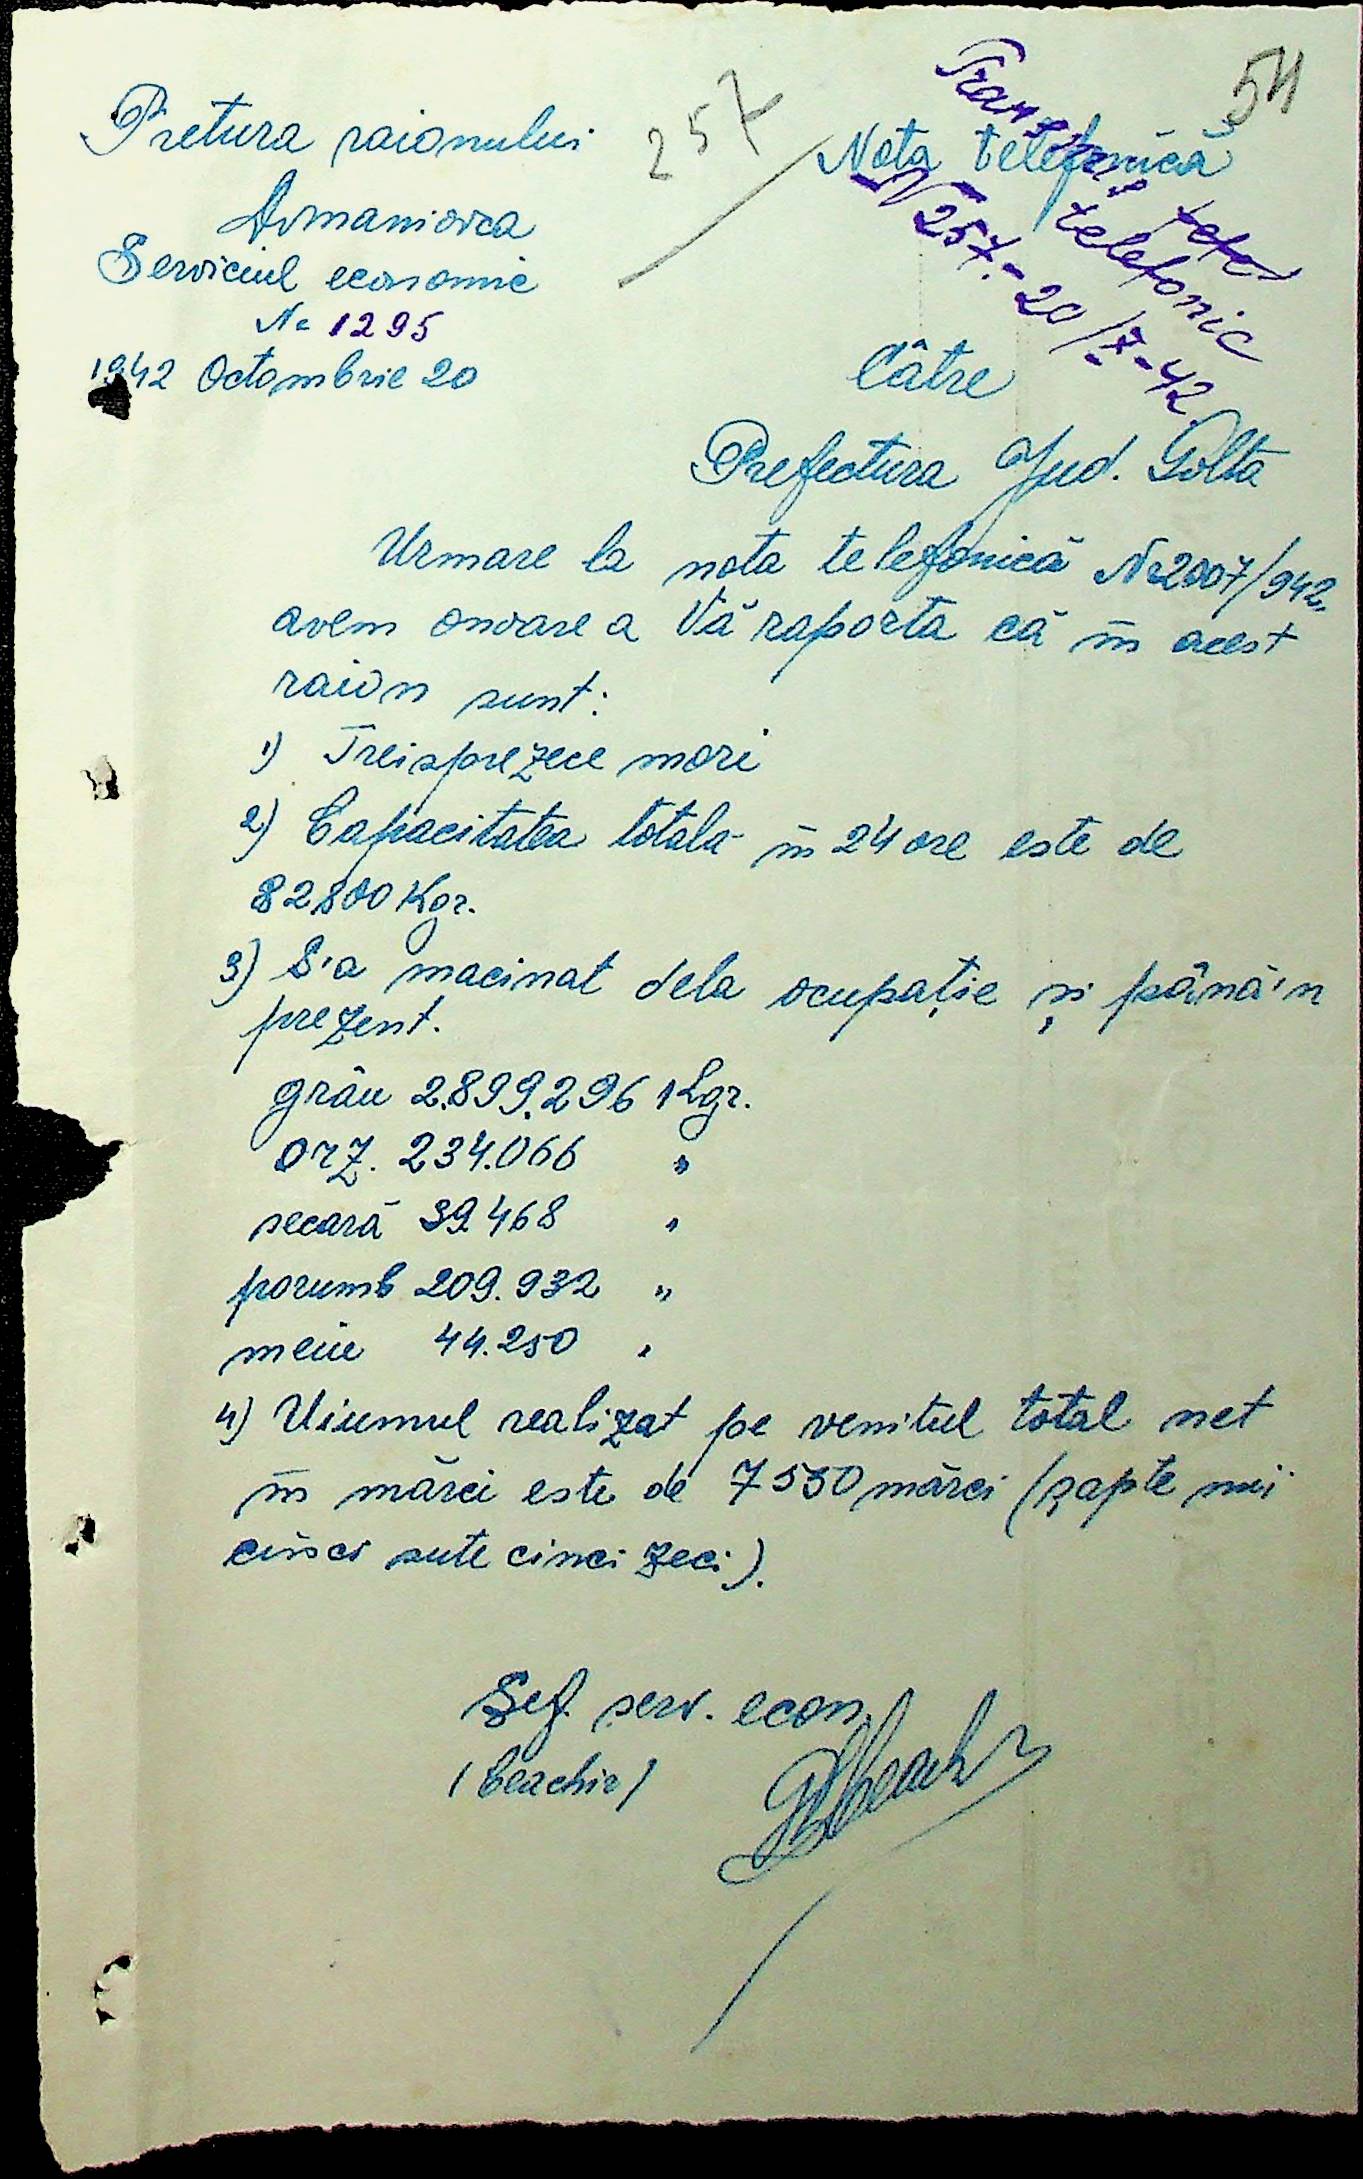 54
257
Pretura raionului
Domaniovca
Serviciul economic
No 1295
1942 Octombrie 20
Nota telefonică
Transmis telef
telefonic
N 257.- 20/7-42
Câtre
Prefectura Jud. Golta
Urmare la nota telefonică No 2007/942,
avem onoare a Vă raporta că în acest
raion sunt:
1) Treisprezece mori
2) Capacitatea totala în 24 ore este de
82800 Kgr.
3) S'a macinat dela ocupație și pânà'n
prezent.
grâu 2.899.296 Kgr.
orz. 234.066 "
secară 39.468 "
porumb 209.932 "
meiu 44.250 "
4) Uiumul realizat pe venitul total net
în mărci este de 7550 mărci (șapte mii
cinci sute cinci zeci).
Șef. serv. econ.